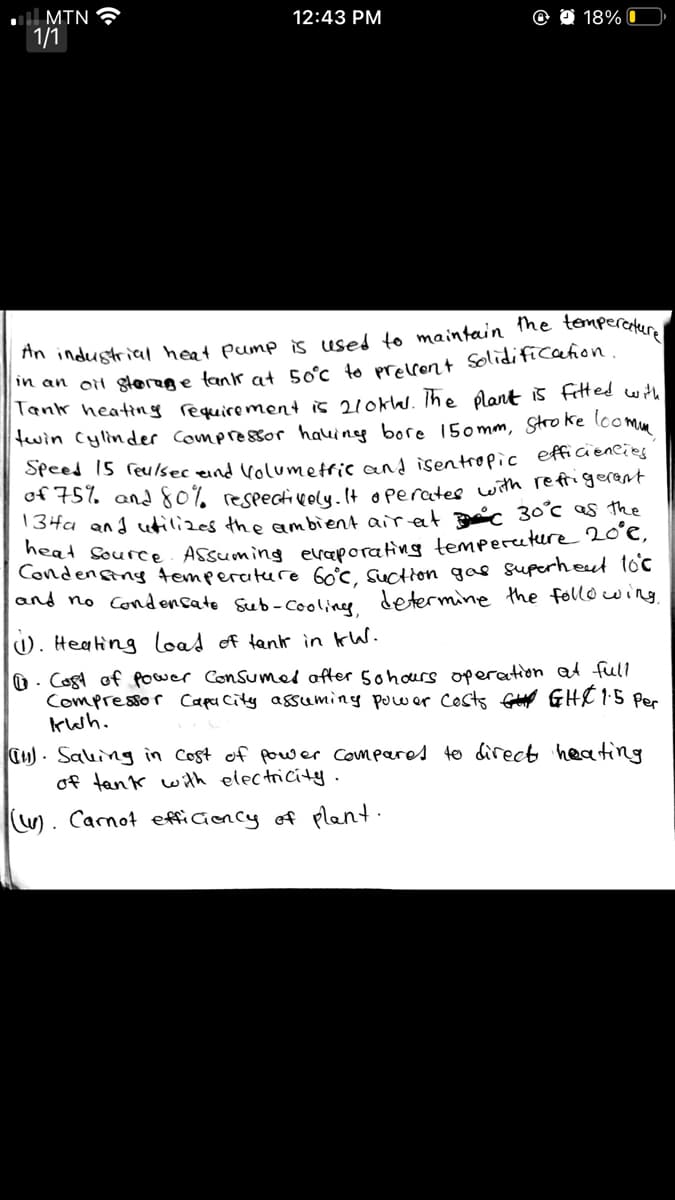 MTN 12:43 PM 18%
1/1
An industrial heat pump is used to maintain the temperature
in an oil storage tank at 50°C to prevent Solidification.
Tank heating requirement is 210kW. The plant is fitted with
twin cylinder compressor having bore 150mm, stroke 100mm
Speed 15 rev/sec and Volumetric and isentropic efficiencies
of 75% and 80% respectively. It operates with refrigerant
134a and utilizes the ambient air at 30°C as the
heat source. Assuming evaporating temperature 20°C,
Condensing temperature 60°C, suction gas superheat 10°C
and no Condensate Sub-Cooling, determine the following.
(i). Heating load of tank in kW.
(ii). Cost of power Consumed after 50hours operation at full
Compressor Capacity assuming power Costs GH₵ 1.5 Per
kWh.
(iii). Saving in Cost of power Compared to direct heating
of tank with electricity.
(iv). Carnot efficiency of plant.